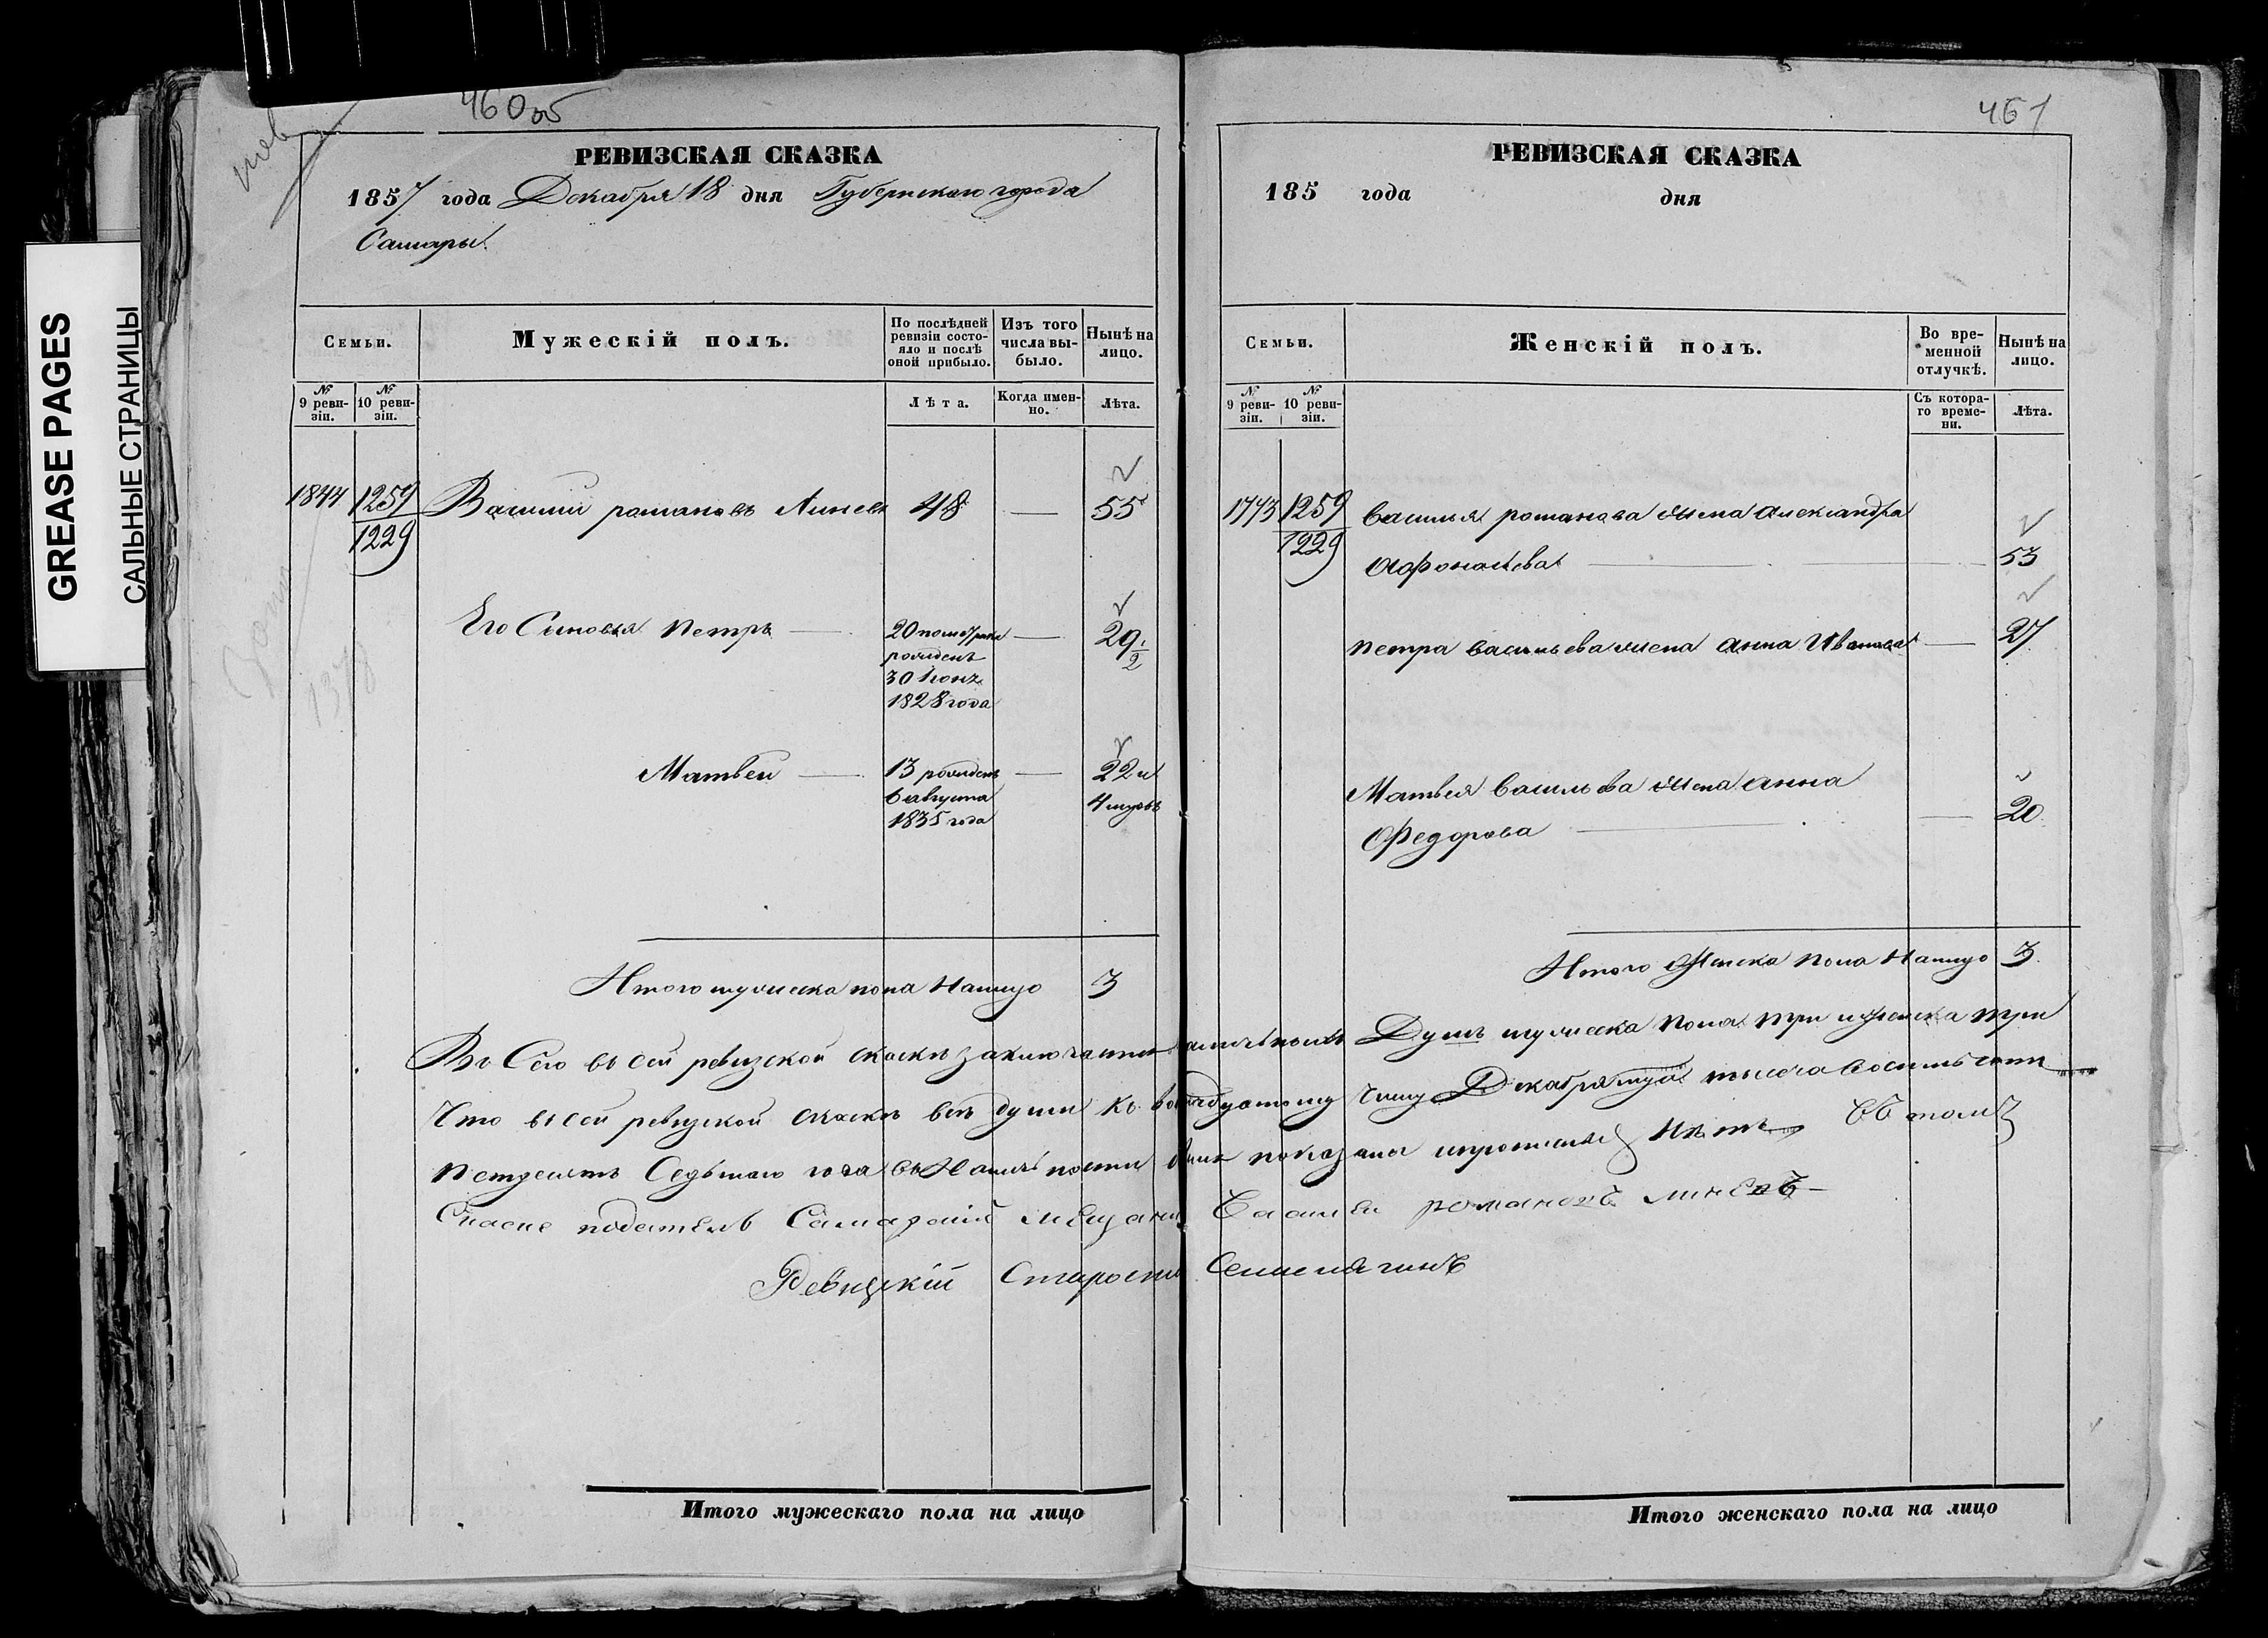 GREASE PAGES
САЛЬНЫЕ СТРАНИЦЫ
460 об
РЕВИЗСКАЯ СКАЗКА
1857 года Декабря 18 дня Губернскаго города
Самары
Семьи.
Мужескій полъ.
По послѣдней ревизіи состояло и послѣ оной прибыло.
Изъ того числа выбыло.
Нынѣ на лицо.
№ 9 ревизіи.
№ 10 ревизіи.
Лѣта.
Когда именно.
Лѣта.
1844 1259 Василий романовъ Линевъ 48 — 55
1229
Его Сыновья Петръ — 20 — 29 1/2
рожденъ
30 Іюня
1828 года
Матвей — 13 рожденъ — 22 и
6 августа 4 месеца
1835 года
Итого мужеска пола Налицо 3
461
РЕВИЗСКАЯ СКАЗКА
185 года дня
Семьи.
Женскій полъ.
Во временной отлучкѣ.
Нынѣ на лицо.
№ 9 ревизіи.
№ 10 ревизіи.
Съ котораго времени.
Лѣта.
1773 1259 Василья романова жена александра
1229 Афонасьева — 53
Петра васильева жена анна Иванова — 27
Матвея васильева жена анна
Федорова — 20
Итого женска пола Налицо 3
Въ Сего въ сей ревизской скаске заключается наличныхъ Душъ мужеска пола три и женска три
Что въ сей ревизской скаске все души къ Декабря тысеча восемьсотъ
Петдесятъ Седьмаго года въ Наличности показаны и прописныхъ Нетъ въ томъ
Скаске податель Самарский мещанинъ Василей романовъ линевъ
Ревизскій Староста
Итого мужескаго пола на лицо
Итого женскаго пола на лицо